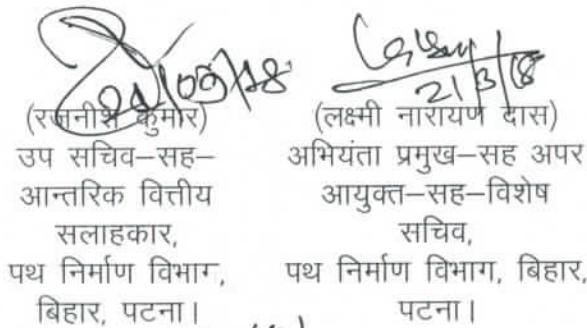 21/03/18
21/3/18
(रजनीश कुमार)
उप सचिव–सह–
आन्तरिक वित्तीय
सलाहकार,
पथ निर्माण विभाग,
बिहार, पटना।
(लक्ष्मी नारायण दास)
अभियंता प्रमुख–सह अपर
आयुक्त–सह–विशेष
सचिव,
पथ निर्माण विभाग, बिहार,
पटना।